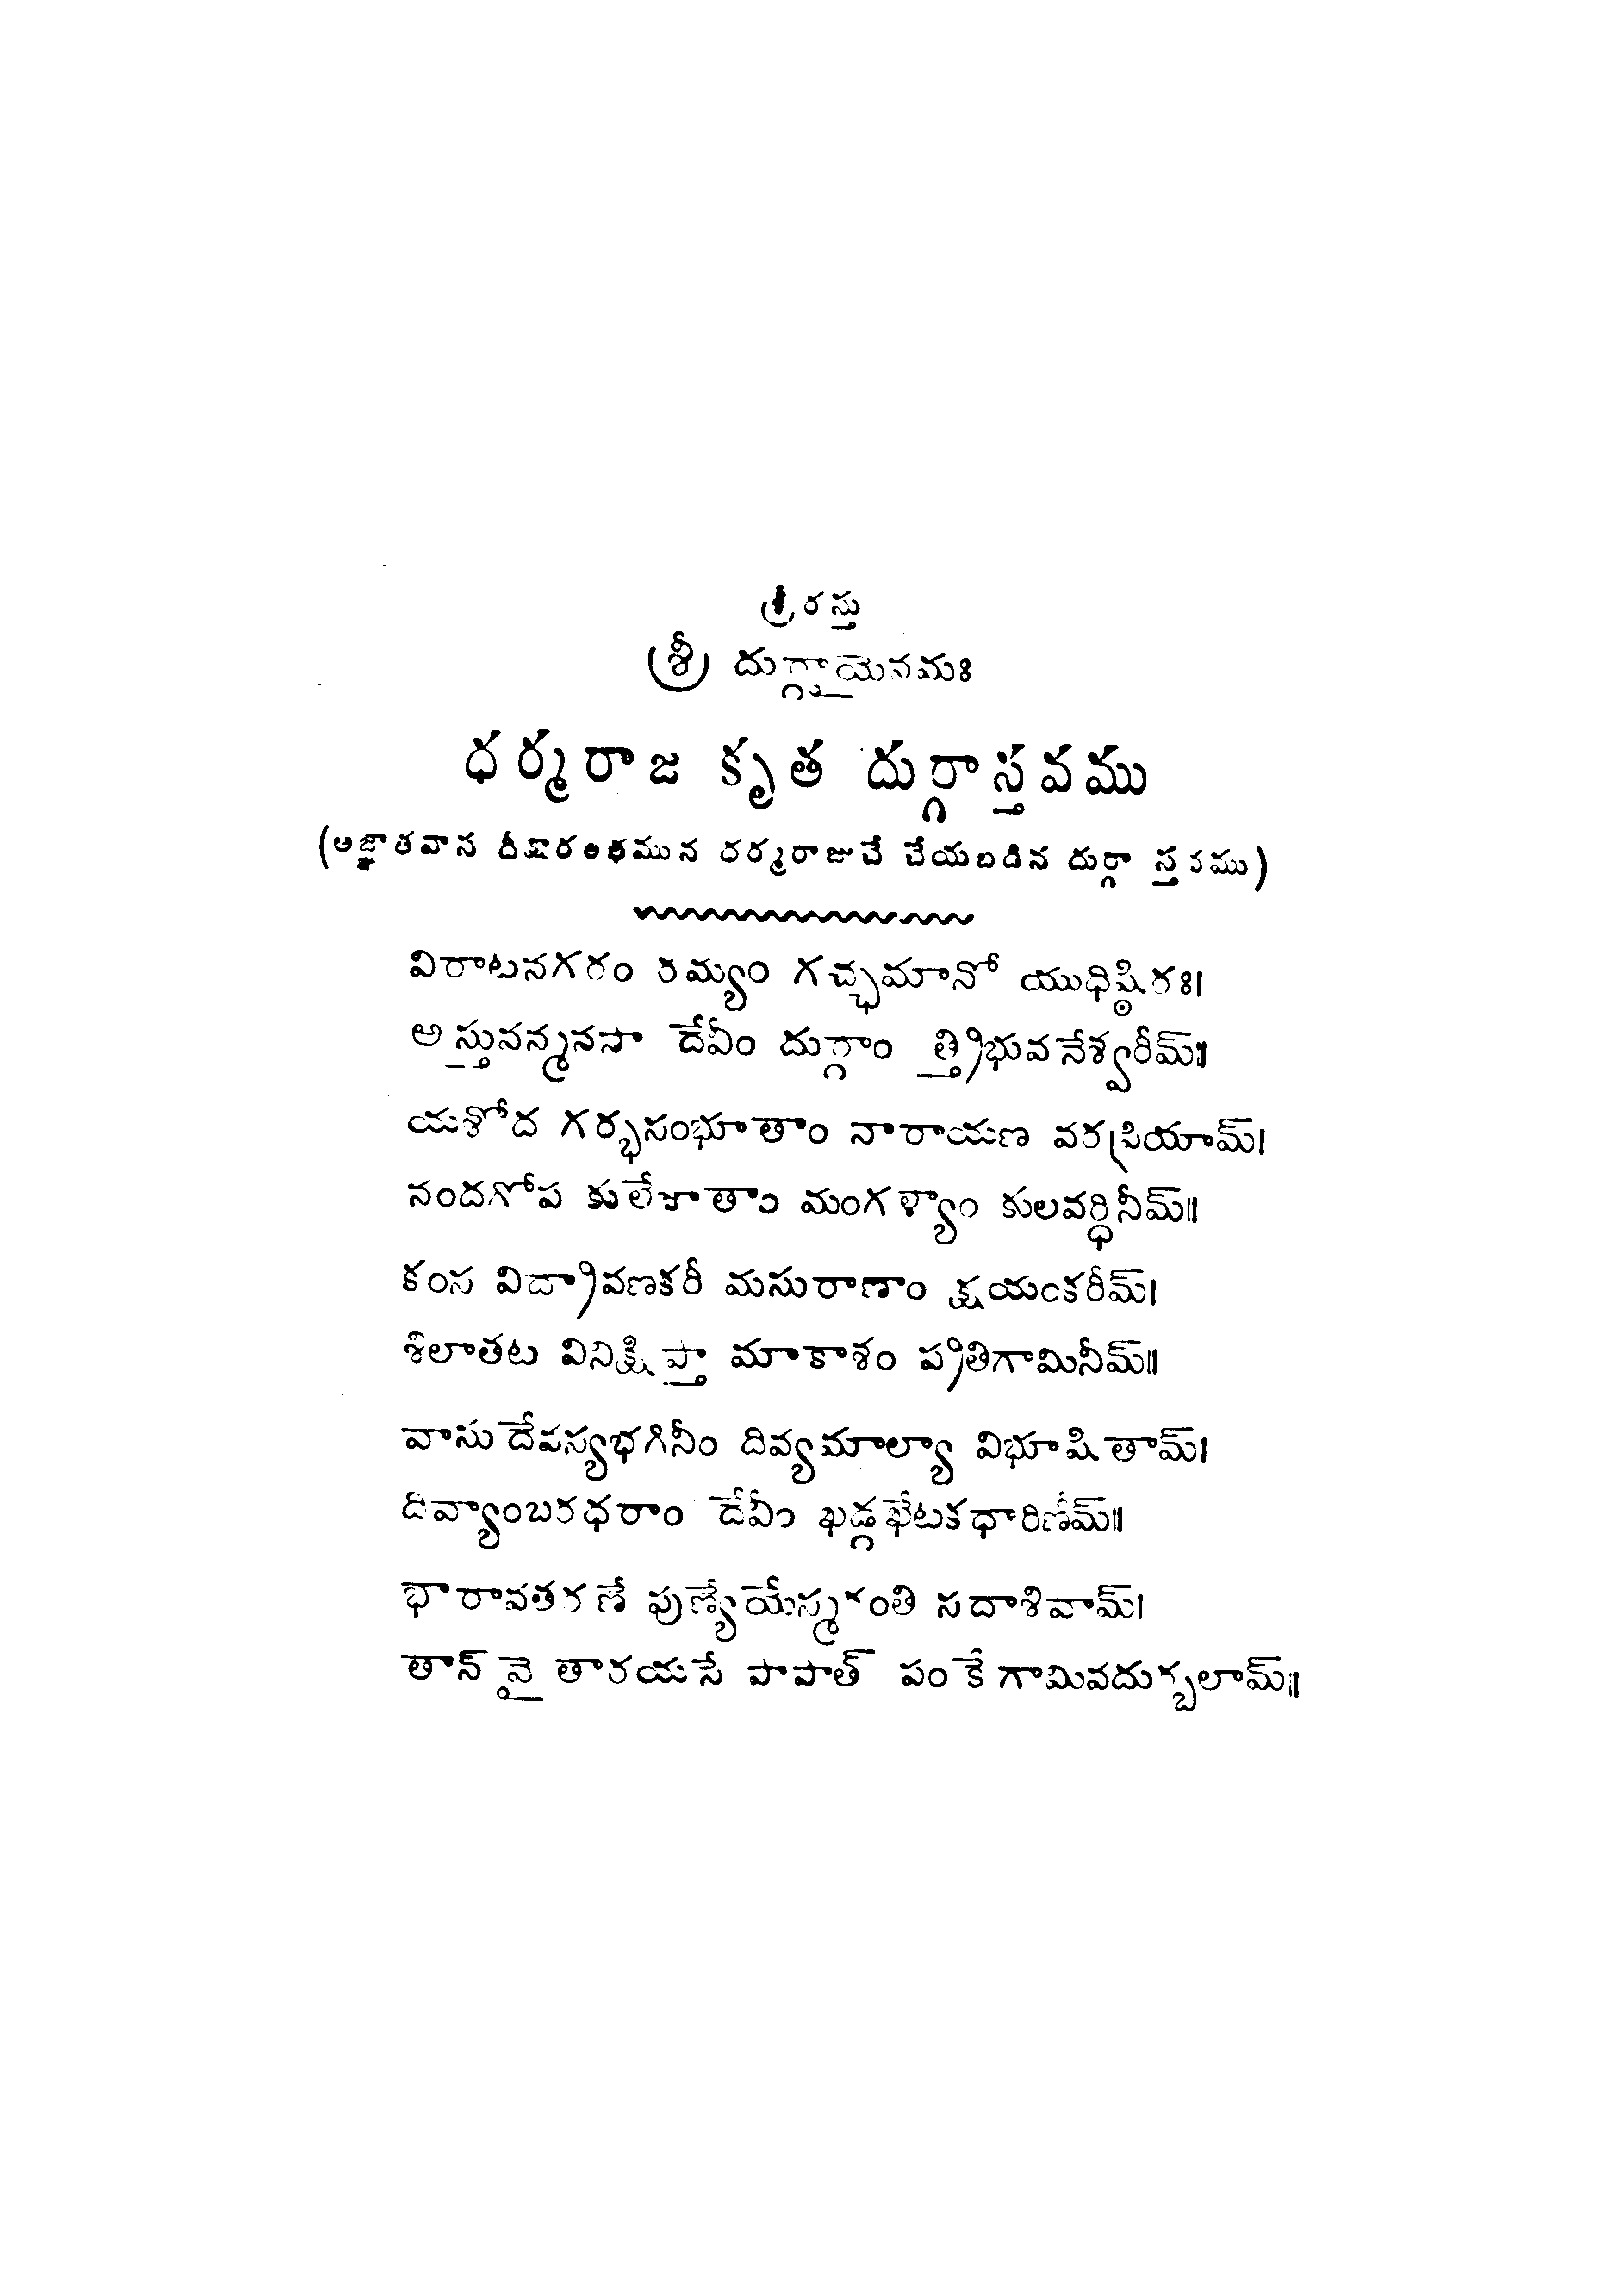 శ్రీరస్తు
శ్రీ దుర్గాయైనమః
ధర్మరాజ కృత దుర్గాస్తవము
(అజ్ఞాతవాస దీక్షారంభమున ధర్మరాజుచే చేయబడిన దుర్గా స్తవము)
విరాటనగరం రమ్యం గచ్ఛమానో యుధిష్ఠిరః।
అస్తునన్మనసా దేవీం దుర్గాం త్త్రిభువనేశ్వరీమ్॥
యశోద గర్భసంభూతాం నారాయణ వరప్రియామ్।
నందగోప కులేజాతాం మంగళ్యాం కులవర్ధినీమ్॥
కంస విద్రావణకరీ మసురాణాం క్షయంకరీమ్।
శిలాతట వినిక్షిప్తా మాకాశం ప్రతిగామినీమ్॥
వాసుదేవస్యభగినీం దివ్యమాల్యా విభూషితామ్।
దివ్యాంబరధరాం దేవీం ఖడ్గఖేటకధారిణీమ్॥
భారావతరణే పుణ్యేయేస్మరంతి సదాశివామ్।
తాన్ నై తారయసే పాపాత్ పంకే గామివదుర్బలామ్॥